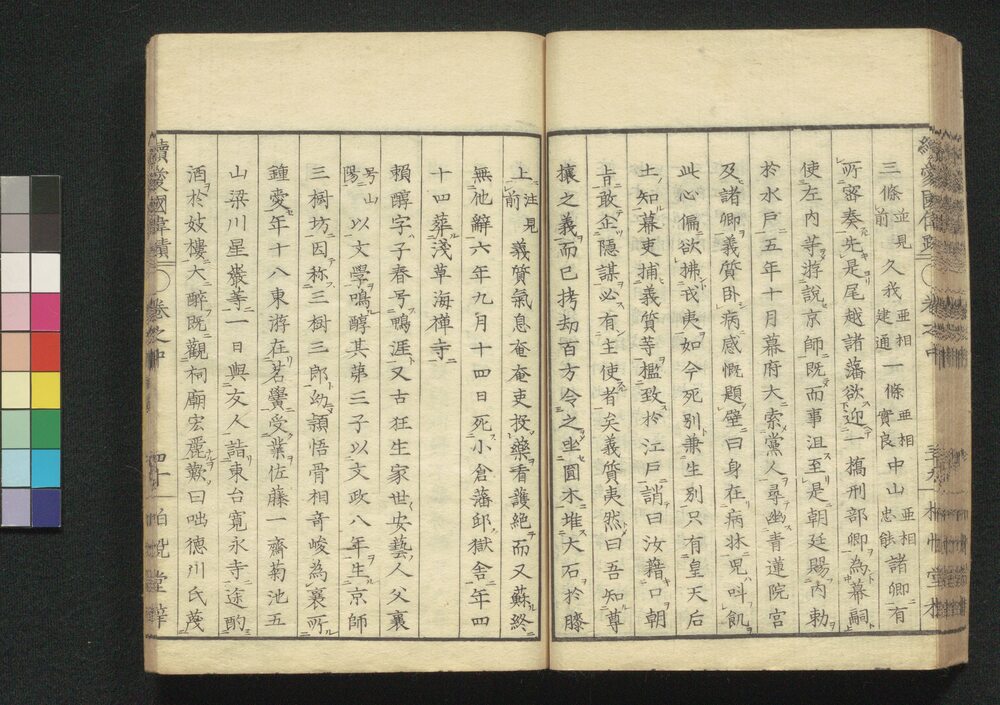 三條並見前久我亜相建通一條亜相實良中山亜相忠能諸卿有
所密奏先是尾越諸藩欲迎一橋刑部卿為幕嗣
使左内等游説京師既而事沮至是朝廷賜内勅
於水戸五年十月幕府大索黨人尋幽青蓮院宮
及諸卿義質卧病感慨題壁曰身在病牀児叫飢
此心偏欲拂戎夷如今死別兼生別只有皇天后
土知幕吏捕義質等檻致於江戸誚曰汝藉口朝
旨敢企隠謀必有主使者矣義質夷然曰吾知尊
攘之義而已拷劫百方令之坐圓木堆大石於膝
上注見前義質氣息奄奄吏投藥看護絶而又蘇終
無他辭六年九月十四日死小倉藩邸獄舎年四
十四葬淺草海禅寺
頼醇字子春号鴨涯又古狂生家世安藝人父襄
号山陽以文學鳴醇其第三子以文政八年生京師
三樹坊因称三樹三郎幼頴悟骨相奇峻為襄所
鍾愛年十八東游在茗黌受業佐藤一齋菊池五
山梁川星巌等一日與友人詣東台寛永寺途酌
酒於妓樓大醉既觀祠廟宏麗歎曰咄徳川氏蔑
續愛國偉績
巻之中
四十